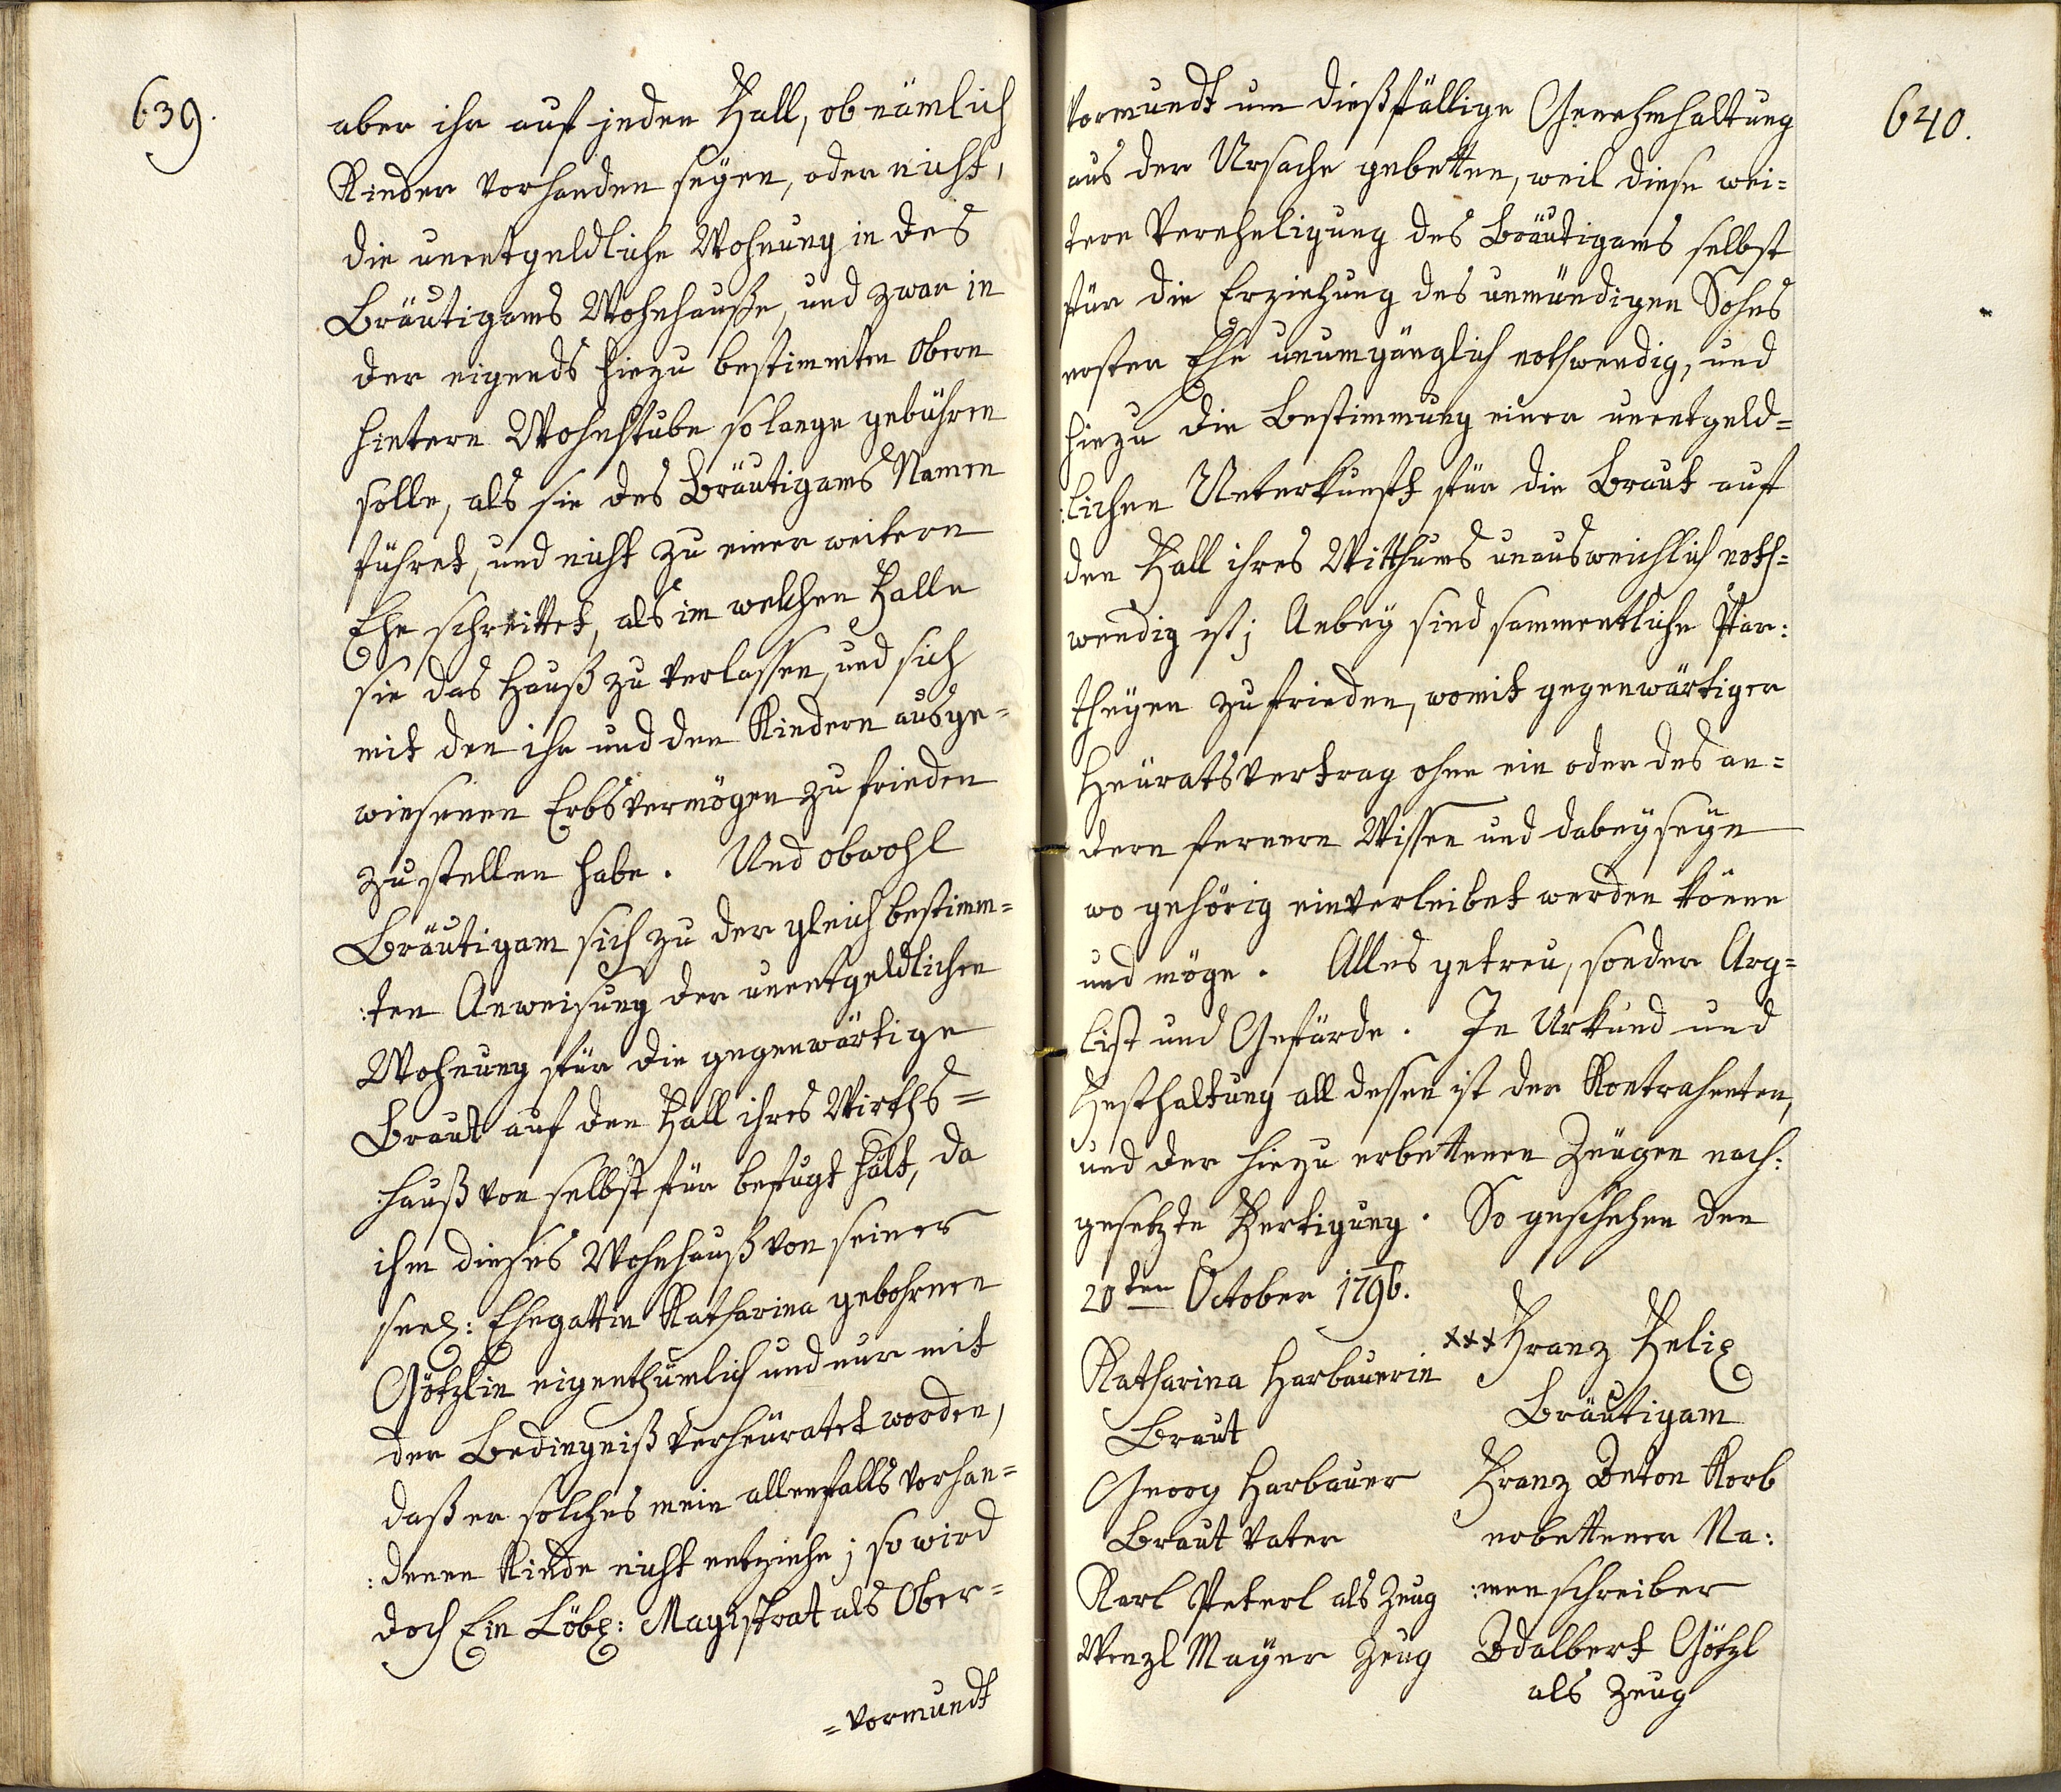 639.
aber ihr auf jeden Fall, ob nämlich
Kinder vorhanden seyen, oder nicht,
die unentgeldliche Wohnung in des
Bräutigams Wohnhauße, und zwar in
der eigends hiezu bestimmten obern
hintern Wohnstube so lange gebühren
solle, als sie des Bräutigams Namen
führet, und nicht zu einer weitern
Ehe schreittet, als im welchen Falle
sie das Hauß zu verlassen, und sich
mit den ihr und den Kindern ausge=
wiesenen Erbsvermögen zu frieden
zu stellen habe. Und obwohl
Bräutigam sich zu der gleich bestimm=
:ten Anweisung der unentgeldlichen
Wohnung für die gegenwärtige
Braut auf den Fall ihres Wirths=
:hauß von selbst für befugt hält, da
ihm dieses Wohnhauß von seiner
seel: Ehegattin Katharina gebohrnen
Götzlin eigenthümlich und nur mit
der Bedingniß verheüratet worden,
daß er solches mein allenfalls vorhan=
:denen Kinde nicht entziehe; so wird
doch Ein Löbl: Magistrat als Ober=
=vormundt
640.
vormundt um dießfällige Genehmhaltung
aus der Ursache gebetten, weil diese wei=
tere Vereheligung des Bräutigams selbst
für die Erziehung des unmündigen Sohns
erster Ehe unumgänglich nothwendig, und
hiezu die Bestimmung einer unentgeld=
:lichen Unterkunft für die Braut auf
den Fall ihres Witthums unausweichlich noth=
wendig ist; Anbey sind sammentliche Par:
theyen zufrieden, womit gegenwärtiger
Heüratsvertrag ohne ein oder des an=
dern fernern Wissen und dabeyseyn
wo gehörig einverleibet werden könne
und möge. Alles getreu, sonder Arg=
list und Gefärde. In Urkund und
Festhaltung all dessen ist der Kontrahenten,
und der hiezu erbettenen Zeugen nach:
gesetzte Fertigung. So geschehen den
20ten October 1796.
Katharina Harbauerin
Braut
Georg Harbauer
Braut Vater
Karl Peterl als Zeug
Wenzl Mayer Zeug
xxx Franz Felix
Bräutigam
Franz Anton Korb
erbettener Na:
:menschreiber
Adalbert Götzl
als Zeug